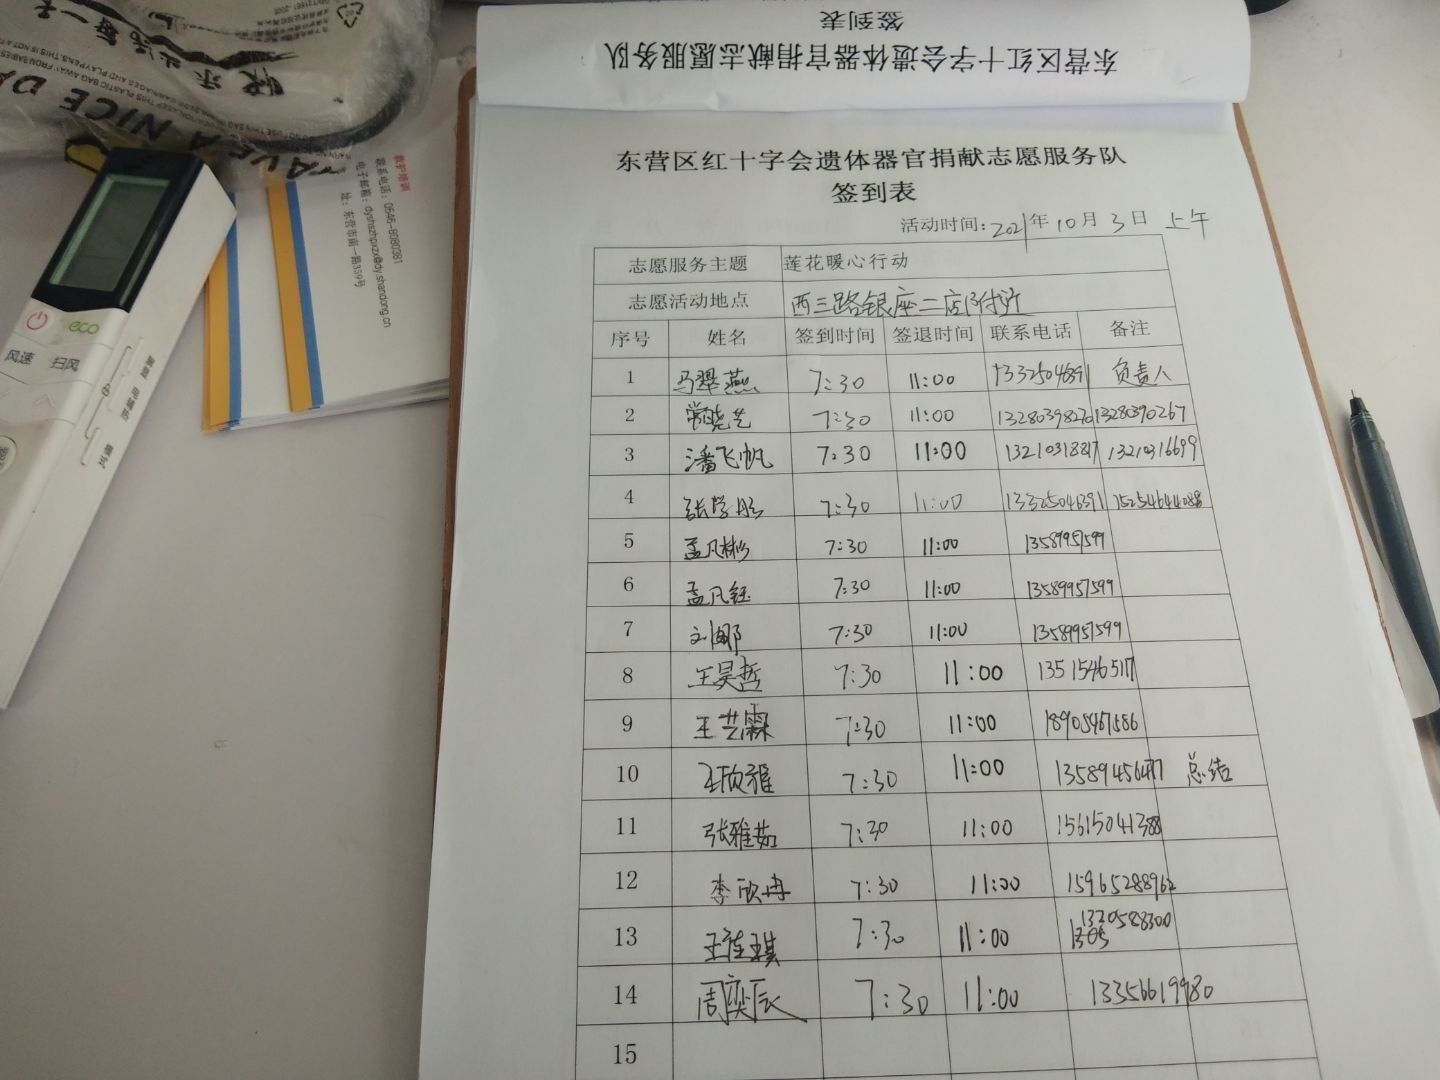 东营区红十字会遗体器官捐献志愿服务队
签到表
东营区红十字会遗体器官捐献志愿服务队
签到表
活动时间: 2021年10月3日 上午
志愿服务主题 莲花暖心行动
志愿活动地点 西三路银座二店附近
序号 姓名 签到时间 签退时间 联系电话 备注
1 马翠燕 7:30 11:00 负责人
2 常晓艺 7:30 11:00 13280398270 13280390267
3 潘飞帆 7:30 11:00 13210318817 13210316699
4 张学彤 7:30 11:00 13325046391 15254644088
5 孟凡彬 7:30 11:00 13589957599
6 孟凡钰 7:30 11:00 13589957599
7 刘娜 7:30 11:00 13589957599
8 王昊哲 7:30 11:00 13515465117
9 王艺霖 7:30 11:00 18905467586
10 王欣雅 7:30 11:00 总结
11 张雅茹 7:30 11:00 15615041388
12 李欣冉 7:30 11:00 15965288962
13 王佳琪 7:30 11:00
14 周奕辰 7:30 11:00 13356619980
15
救护培训
联系电话: 0546-8080381
电子邮箱: dyshszhpxzx@dy.shandong.cn
址: 东营市南一路359号
eco
风速 扫风
HAVE A NICE DA